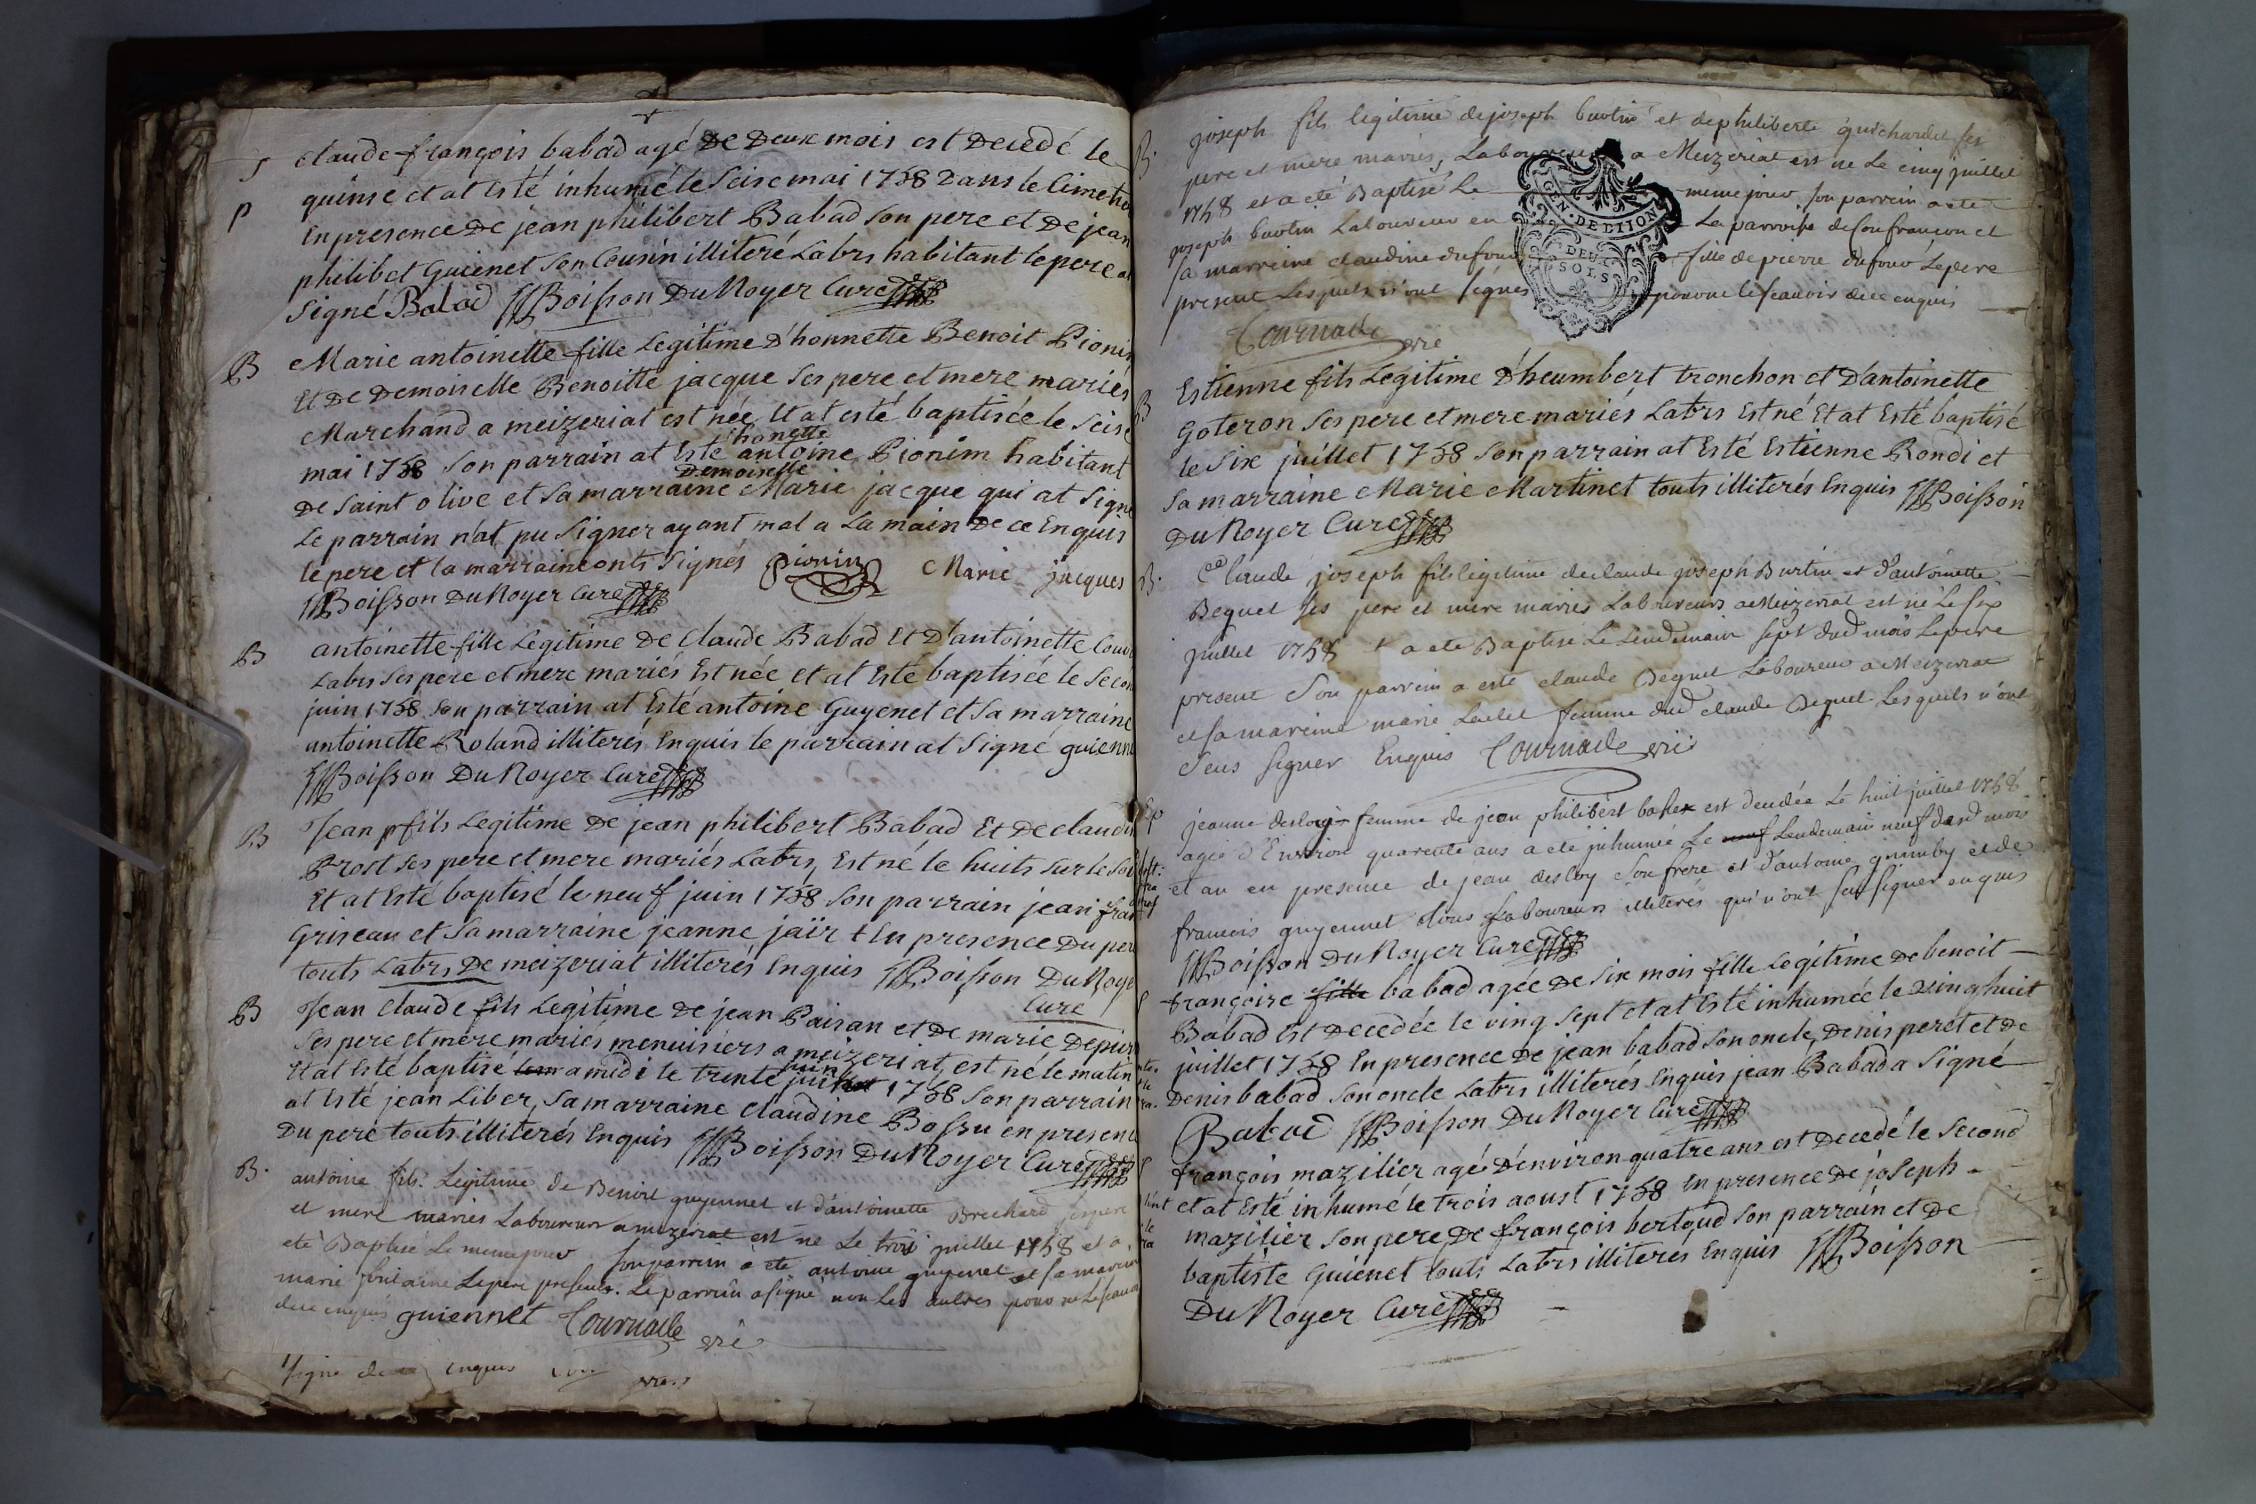 S claude françois babad agé de deux mois est decedé le
P quinse et at esté inhumé le seise mai 1758 dans le cimeti
en presence de jean philibert Babad son pere et de jean
philibet Guienet son cousin illiteré Labrs habitant le pere a
signé Babad Boisson DuNoyer Curé
B Marie antoinette fille Legitime d'honnette Benoit Pionin
et de Demoiselle Benoitte jacque ses pere et mere mariés
Marchand a meizeriat est née et at esté baptisée le seise
honette
mai 1758 son parrain at esté antoine Pionim habitant
Demoiselle
de saint olive et sa marraine Marie jacque qui at signé
Le parrain n'at pu signer ayant mal a La main de ce enquis
le pere et la marraine onts signés Pionin Marie jacques
Boisson DuNoyer Curé
B antoinette fille Legitime de Claude Babad et d'antoinette
Labrs ses pere et mere mariés est née et at esté baptisée le secon
juin 1758 son parrain at esté antoine Guyenet et sa marraine
antoinette Roland illiterés enquis le parrain at signé guienne
Boisson DuNoyer Curé
B Jean fils Legitime de jean philibert Babad et de claudin
Prost ses pere et mere mariés Labrs, est né le huits sur le soi
et at esté baptisé le neuf juin 1758 son parrain jean fran
Griseau et sa marraine jeanne jaïr + en presence du pere
touts Labrs de meizeriat illiterés enquis Boisson DuNoye
Curé
B Jean claude fils Legitime de jean Paisan et de marie
ses pere et mere mariés menuisiers a meizeriat, est né le matin
juin
et at esté baptisé a midi le trente juillet 1758 son parrain
at esté jean Liber, sa marraine claudine Bossu en presenc
Du pere touts illiterés enquis Boisson DuNoyer Curé
B. antoine fils Legitime de Benoit guyennet et d'antoinette Brechard
et mere mariés Laboureurs a mezeriat est né Le trois juillet 1758 et a
eté Baptisé Le meme jour son parrin a ete antoine guyenet et sa marein
marie fontaine Le pere present. Le parrin a signé non Les autres pour ne Le scavoi
de ce enquis guiennet Tournade vre
signé de enquis
B. joseph fils legitime de joseph burtin et de philiberte guichardet ses
pere et mere mariés, Laboureurs a Meizeriat est né Le cinq juillet
1758 et a eté Baptisé Le meme jour, son parrein a eté
joseph burtin Laboureur en La parroisse de confrancon et
sa marreine claudine dufour fille de pierre dufour Le pere
present Lesquels n'ont signés pour ne le scavoir de ce enquis
GEN. DE DIJON
DEUX
SOLS
Tournade vre
B Estienne fils Legitime d'heumbert tronchon et d'antoinette
Goteron ses pere et mere mariés Labrs est né et at esté baptisé
le six juillet 1758 son parrain at esté Estienne Rondi et
sa marraine Marie Martinet touts illiterés enquis Boisson
DuNoyer Curé
B. Claude joseph fils legitime de claude joseph Burtin et d'antoinette
Bequet ses pere et mere mariés Laboureurs a Meizeriat est né Le six
juillet 1758 et a eté Baptisé Le Lendemain sept dud mois Le pere
present son parrein a esté claude Bequet Laboureur a Meizeriat
et sa mareine marie femme dud claude Bequet Lesquels n'ont
sceus signer Enquis Tournade vre
jeanne desloy femme de jean philibert est decedée Le huit juillet 1758
agée d'Environ quarente ans a eté inhumée Le neuf Lendemain neuf dud mois
et an en presence de jean desloy son frere et d'antoine et de
francois guyennet tous Laboureurs illiterés qui n'ont sceu signer enquis
Boisson DuNoyer Curé
françoise fille babad agée de six mois fille Legitime de benoit
Babad est decedée le vinq sept et at esté inhumée le vinq huit
juillet 1758 en presence de jean babad son oncle, denis peret et de
Denis babad son oncle Labrs illiterés enquis jean Babad a signé
Babad Boisson DuNoyer Curé
françois mazilier agé d'environ quatre ans est decedé le second
et at esté inhumé le trois aoust 1758 en presence de joseph
mazilier son pere de françois bertoud son parrain et de
baptiste Guienet touts Labrs illiterés enquis Boisson
DuNoyer Curé